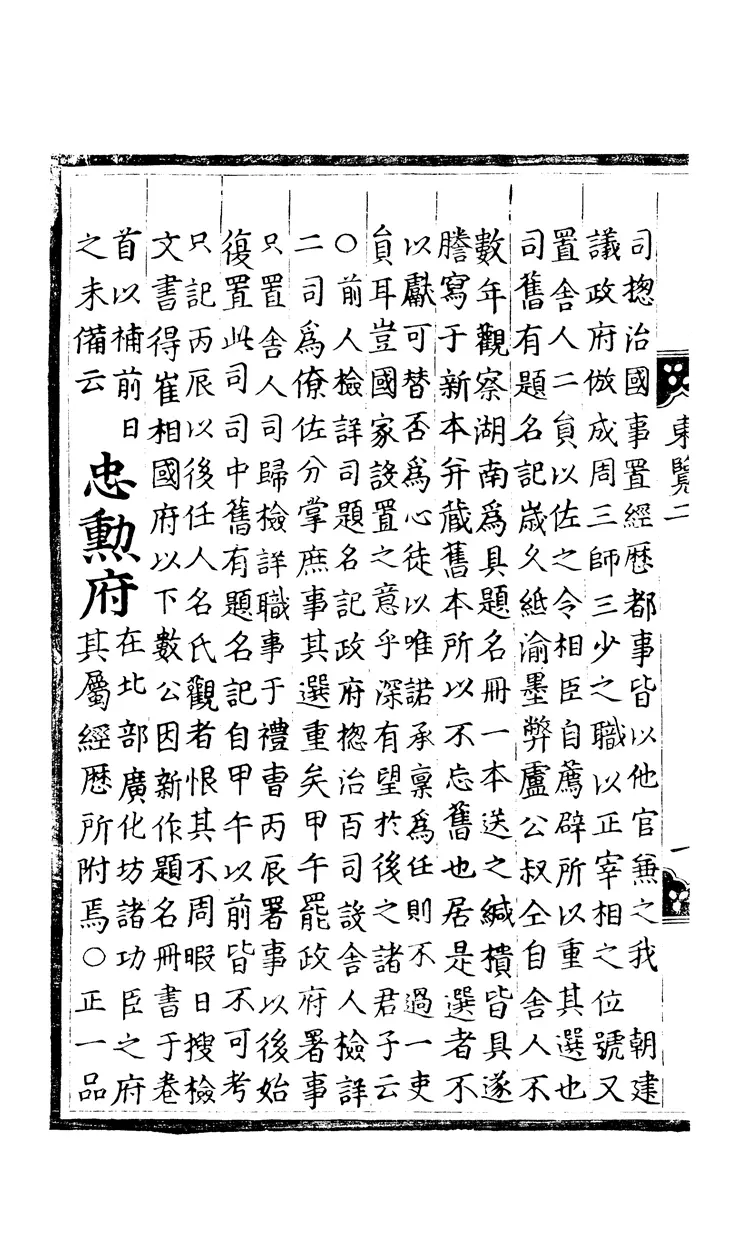 東覽二
一
司摠治國事置經歷都事皆以他官兼之我 朝建
議政府倣成周三師三少之職以正宰相之位號又
置舍人二員以佐之令相臣自薦辟所以重其選也
司舊有題名記歲久紙渝墨弊盧公叔仝自舍人不
數年觀察湖南爲具題名冊一本送之緘樻皆具遂
謄寫于新本弁藏舊本所以不忘舊也居是選者不
以獻可替否爲心徒以唯諾承稟爲任則不過一吏
員耳豈國家設置之意乎深有望於後之諸君子云
○前人檢詳司題名記政府摠治百司設舍人檢詳
二司爲僚佐分掌庶事其選重矣甲午罷政府署事
只置舍人司歸檢詳職事于禮曹丙辰署事以後始
復置此司司中舊有題名記自甲午以前皆不可考
只記丙辰以後任人名氏觀者恨其不周暇日搜檢
文書得崔相國府以下數公因新作題名冊書于卷
首以補前日
之未備云
忠勳府
在北部廣化坊諸功臣之府
其屬經歷所附焉○正一品